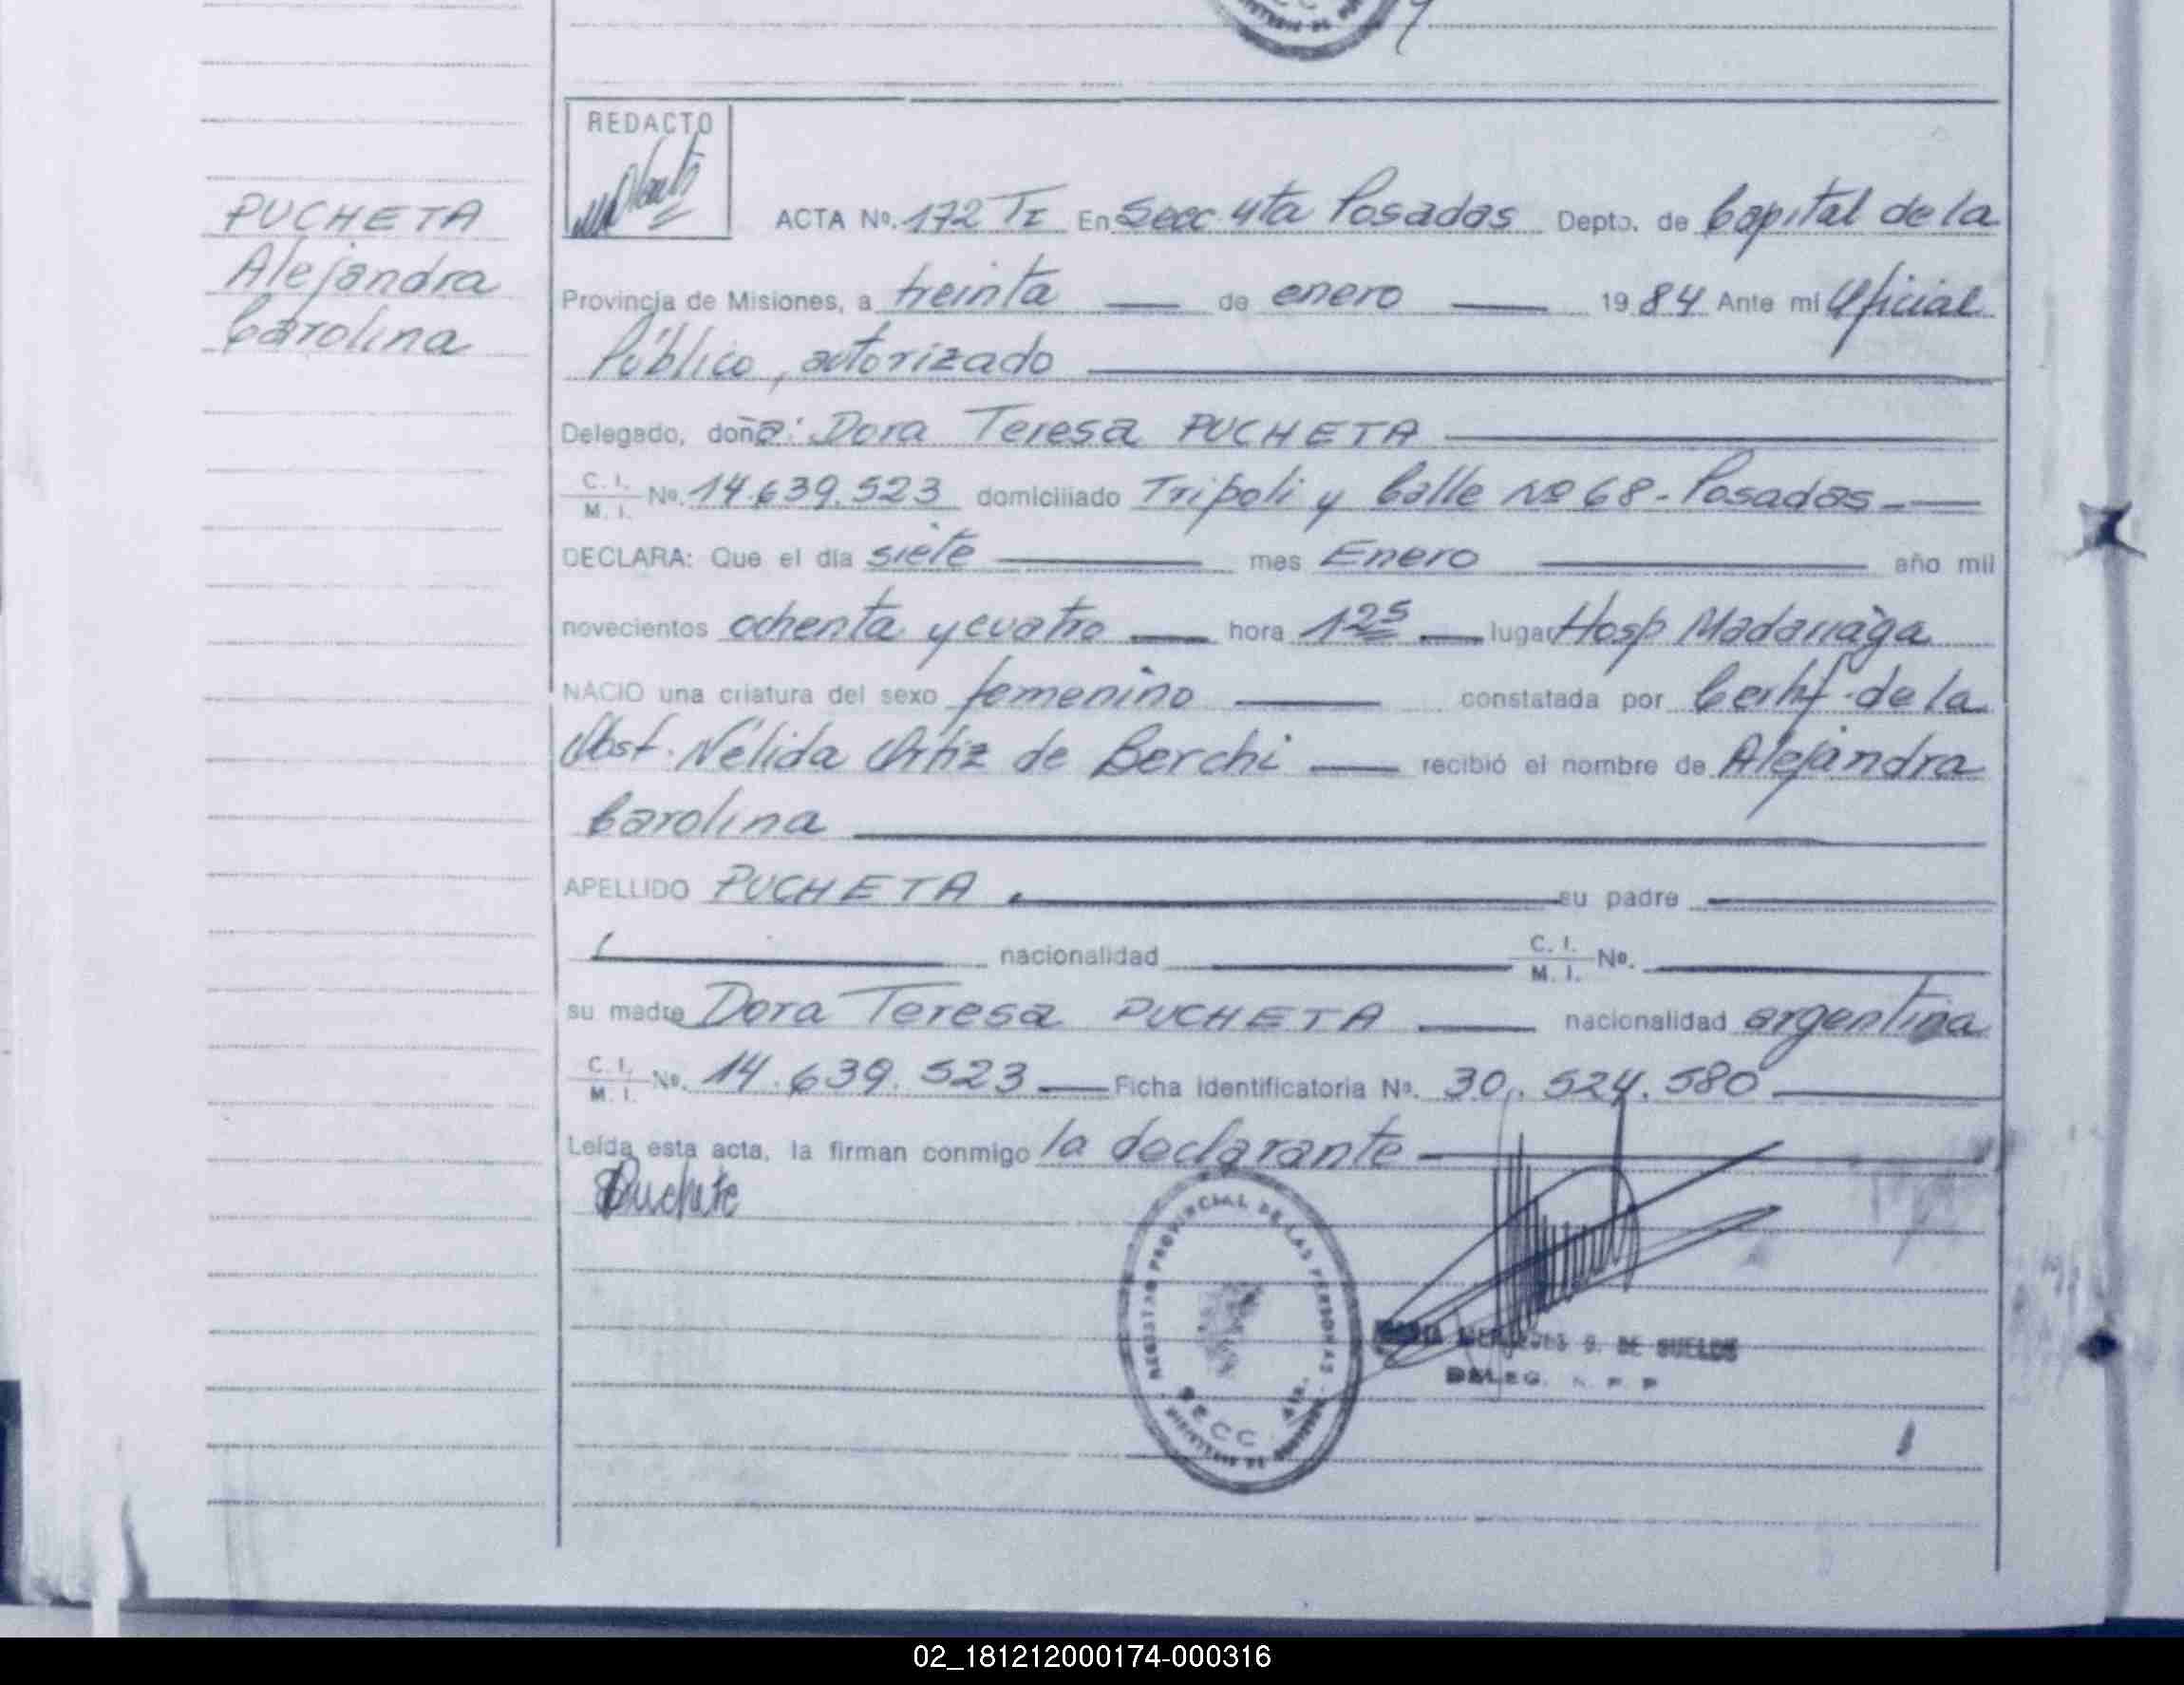 REDACTO
PUCHETA
Alejandra
Carolina
ACTA Nº. 172 TI En Secc 4ta Posadas Depto. de Capital de la
Provincia de Misiones, a treinta de enero 1984 Ante mí Oficial
Público, autorizado
Delegado, doña: Dora Teresa PUCHETA
C. I. M. I. Nº. 14.639.523 domiciliado Tripoli y Calle Nº 68 - Posadas -
DECLARA: Que el día siete mes Enero año mil
novecientos ochenta y cuatro hora 12⁵ lugar Hosp Madariaga
NACIO una criatura del sexo femenino constatada por Certif. de la
Obst. Nélida Ortiz de Berchi recibió el nombre de Alejandra
Carolina
APELLIDO PUCHETA su padre
nacionalidad C. I. M. I. Nº.
su madre Dora Teresa PUCHETA nacionalidad argentina
C. I. M. I. Nº. 14.639.523 Ficha identificatoria Nº. 30.524.580
Leída esta acta, la firman conmigo la declarante
REGISTRO PROVINCIAL DE LAS PERSONAS
SECC. 4ta.
MINISTERIO DE GOBIERNO
MERCEDES G. DE
DELEG. R. P. P.
02_181212000174-000316